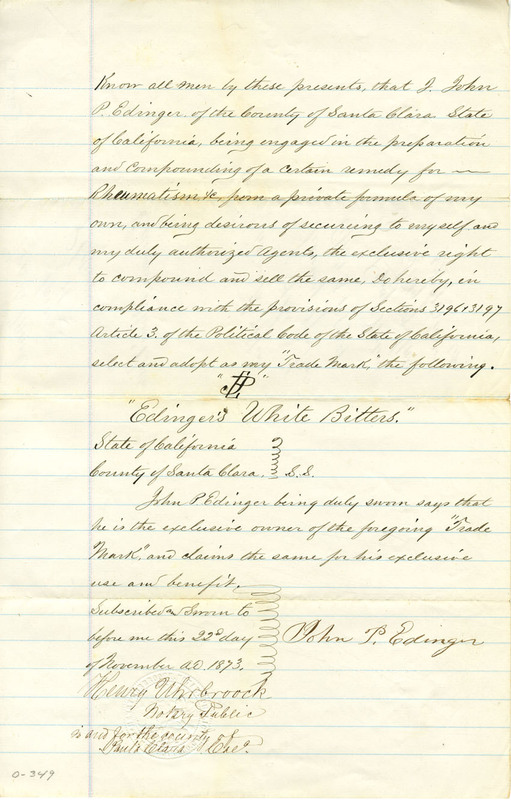 Know all men by these presents, that I. John
P. Edinger. of the County of Santa Clara State
of California, being engaged in the preparation
and compounding of a certain remedy for
Rheumatism &c, from a private formula of my
own, and being desirous of secureing to myself and
my duly authorized Agents, the exclusive right
to compound and sell the same, Do hereby, in
compliance with the provisions of Sections 3196 & 3197
Article 3. of the Political Code of the State of California,
select and adopt as my "Trade Mark," the following.
"Edinger's White Bitters."
State of California
County of Santa Clara. S.S.
John P. Edinger being duly sworn says that
he is the exclusive owner of the foregoing "Trade
Mark," and claims the same for his exclusive
use and benefit.
Subscribed and Sworn to
before me this 22d day
of November A.D. 1873.
John P. Edinger
Henry Uhrbroock
Notary Public
in and for the county of
Santa Clara Cal.
0-349